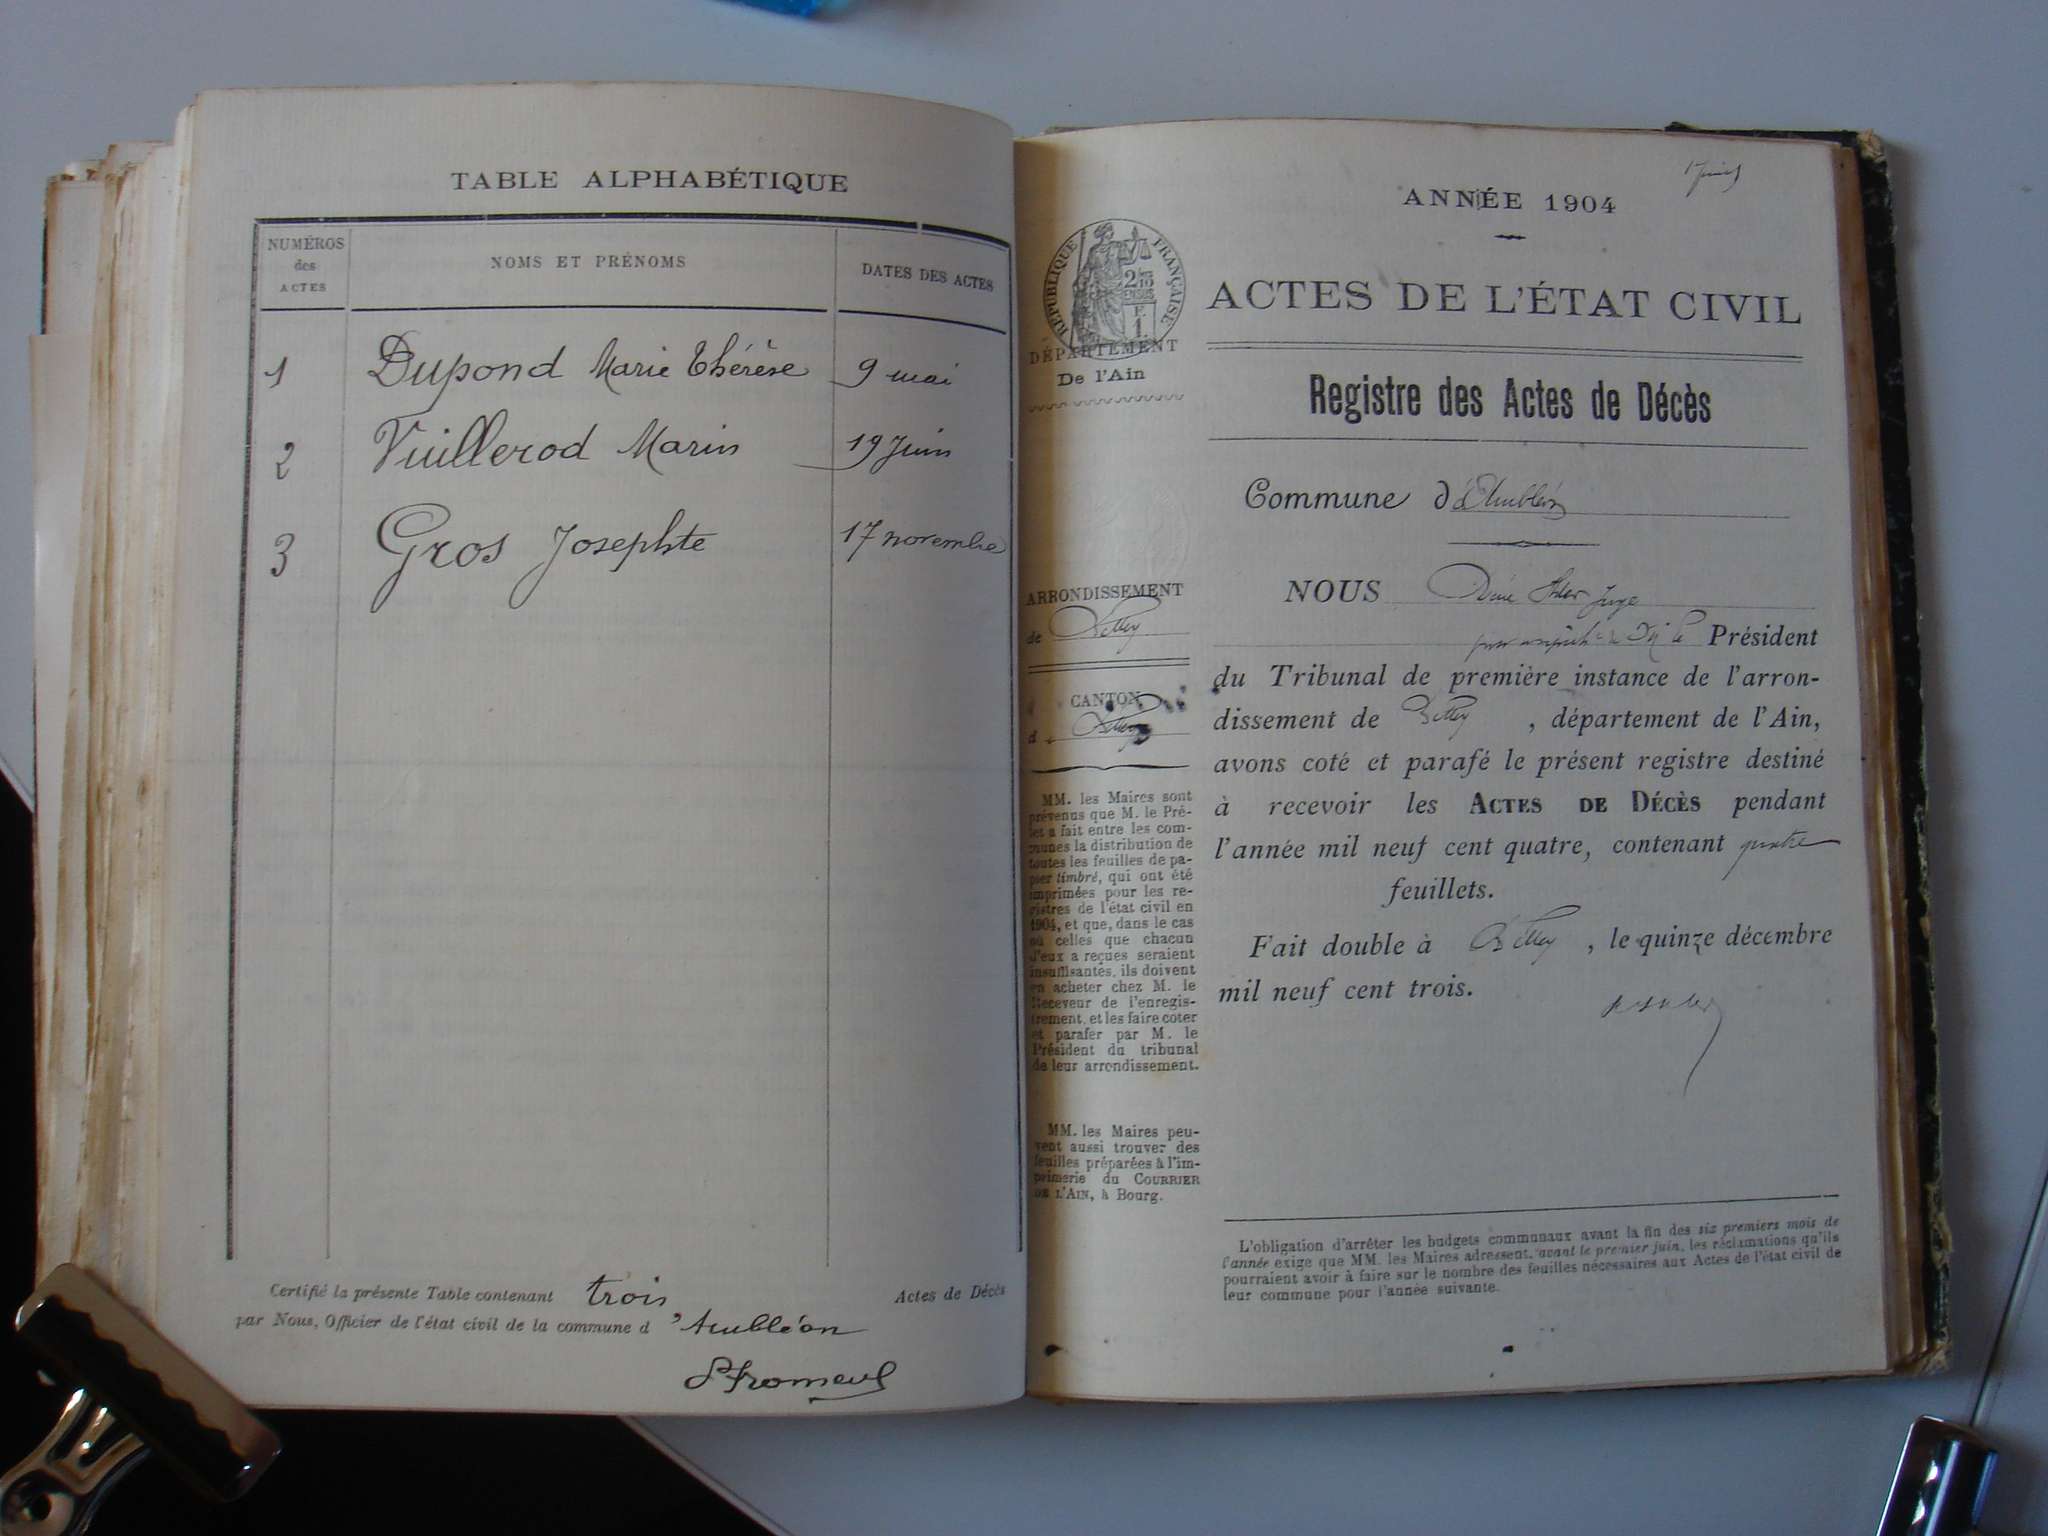 TABLE ALPHABÉTIQUE
NUMÉROS
des
ACTES
NOMS ET PRÉNOMS
DATES DES ACTES
1 Dupond Marie Thérèse 9 mai
2 Vuillerod Marin 19 Juin
3 Gros Josephte 17 novembre
Certifié la présente Table contenant trois Actes de Décès
par Nous, Officier de l'état civil de la commune d'Ambléon
ANNÉE 1904
RÉPUBLIQUE FRANÇAISE
DÉPARTEMENT
De l'Ain
ARRONDISSEMENT
de Belley
CANTON
de Belley
MM. les Maires sont
prévenus que M. le Pré-
fet a fait entre les com-
munes la distribution de
toutes les feuilles de pa-
pier timbré, qui ont été
imprimées pour les re-
gistres de l'état civil en
1904, et que, dans le cas
où celles que chacun
d'eux a reçues seraient
insuffisantes, ils doivent
en acheter chez M. le
Receveur de l'enregis-
trement, et les faire coter
et parafer par M. le
Président du tribunal
de leur arrondissement.
MM. les Maires peu-
vent aussi trouver des
feuilles préparées à l'im-
primerie du COURRIER
DE L'AIN, à Bourg.
ACTES DE L'ÉTAT CIVIL
Registre des Actes de Décès
Commune d'Ambléon
NOUS Juge
Président
du Tribunal de première instance de l'arron-
dissement de Belley, département de l'Ain,
avons coté et parafé le présent registre destiné
à recevoir les ACTES DE DÉCÈS pendant
l'année mil neuf cent quatre, contenant quatre
feuillets.
Fait double à Belley, le quinze décembre
mil neuf cent trois.
L'obligation d'arrêter les budgets communaux avant la fin des six premiers mois de
l'année exige que MM. les Maires adressent, avant le premier juin, les réclamations qu'ils
pourraient avoir à faire sur le nombre des feuilles nécessaires aux Actes de l'état civil de
leur commune pour l'année suivante.